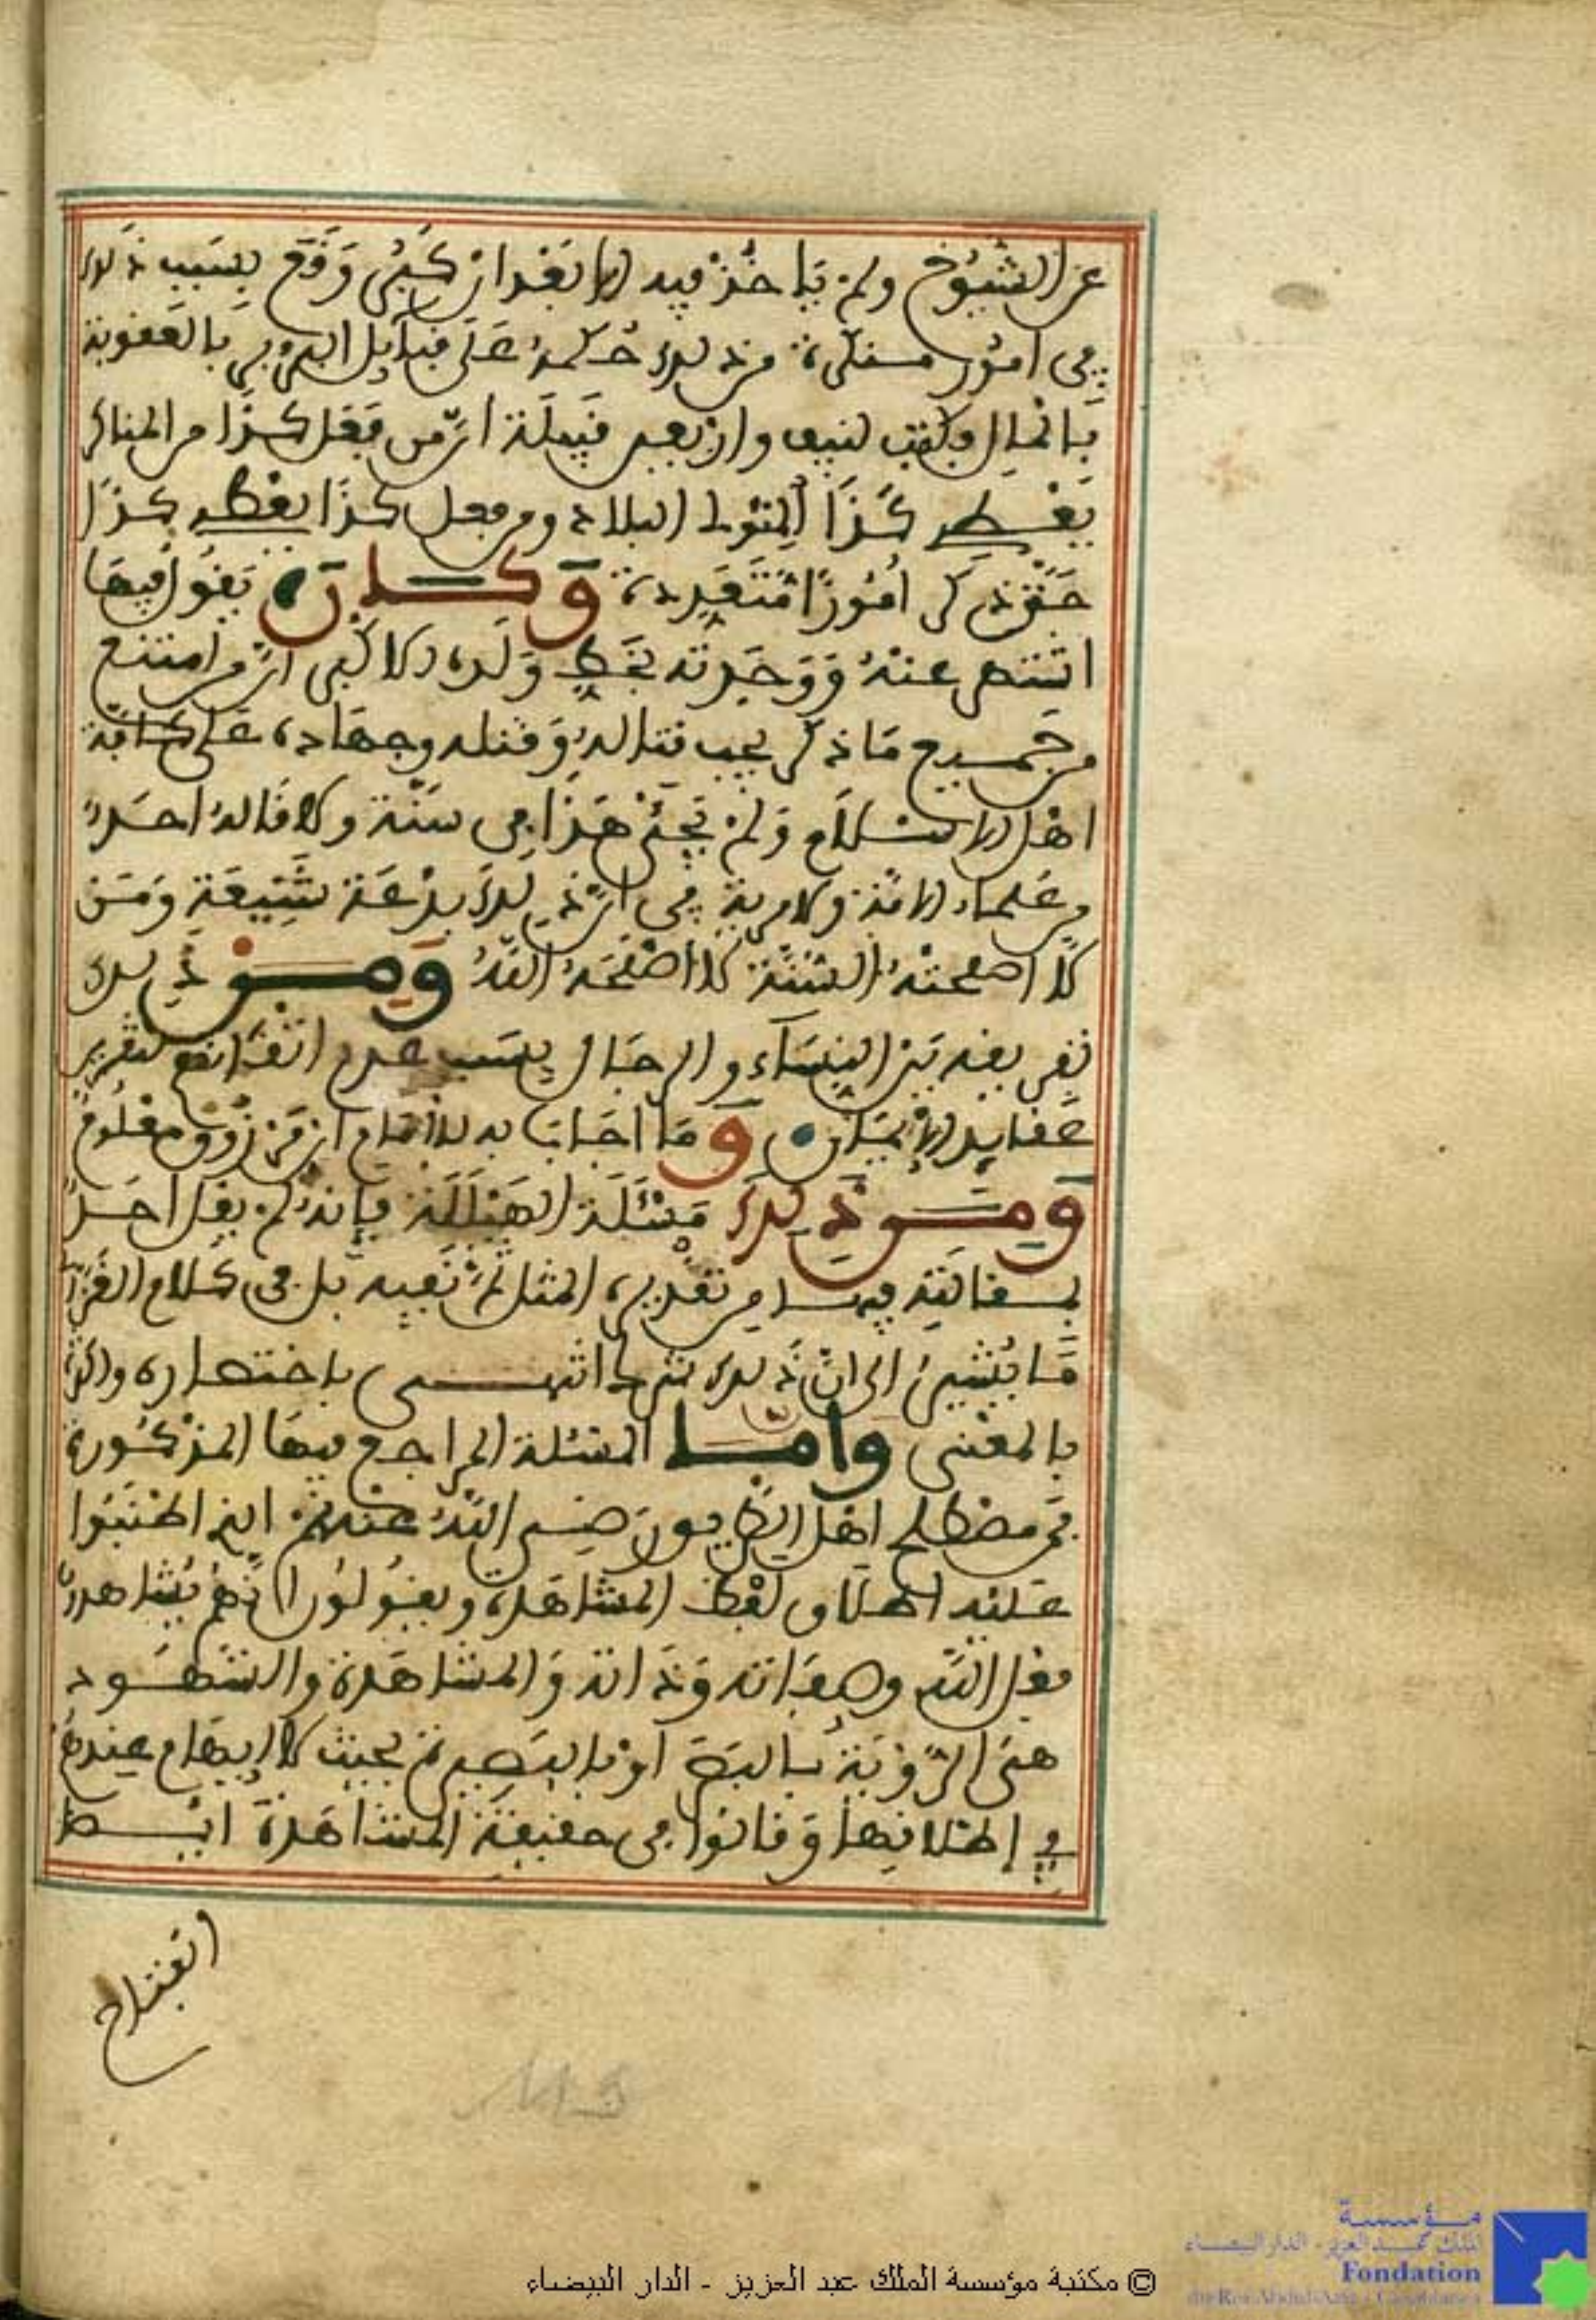 عن الشيوخ ولم ياخذ فيه الا بعد ان كبر وقع بسبب ذلك
في امور منكرة من ذلك حكمه على قبايل البربر بالعقوبة
بالمال فكتب لنيف وان بعير قبيلة ان من فعل كذا من المناكر
يعطى كذا لمتولي البلاد ومن فعل كذا يعطى كذا
حتى ذكر امورا متعددة وكان يقول فيها
انتهى عنه ووجدته بخط ولده الاكبر ان من امتنع
من جميع ما ذكر يجب قتاله وقتله وجهاده على كافة
اهل الاسلام ولم يجئ هذا في سنة ولا قاله احد
من علماء الامة ولا مرية في ان ذلك بدعة شنيعة ومن
لا اصلحته السنة لا اصلحه الله ومن ذلك
تفريقه بين النساء والرجال بسبب عدم اتقانهم لتقرير
عقايد الايمان وما اجاب به للامام ابن مرزوق معلوم
ومن ذلك مسئلة الهيللة فانه لم يقل احد
بمقالته فيها من تقدير المثل ثم نفيه بل في كلام القرافي
ما يشير الى ان ذلك شرك انتهى باختصاره واكثره
بالمعنى واما المسئلة المراجع فيها المذكورة
فمن مصطلح اهل الطريق رضي الله عنهم انهم اطنبوا
عليه اطلاق لفظ المشاهدة ويقولون انهم يشاهدون
فعل الله وصفاته وذاته والمشاهدة والشهود
هي الرؤية بالبصر او بالبصيرة بحيث لا ايهام عندهم
في اطلاقها وقالوا في حقيقة المشاهدة ابسط
انفتاح
© مكتبة مؤسسة الملك عبد العزيز - الدار البيضاء
مؤسسة
الملك عبد العزيز - الدار البيضاء
Fondation
du Roi Abdul-Aziz - Casablanca